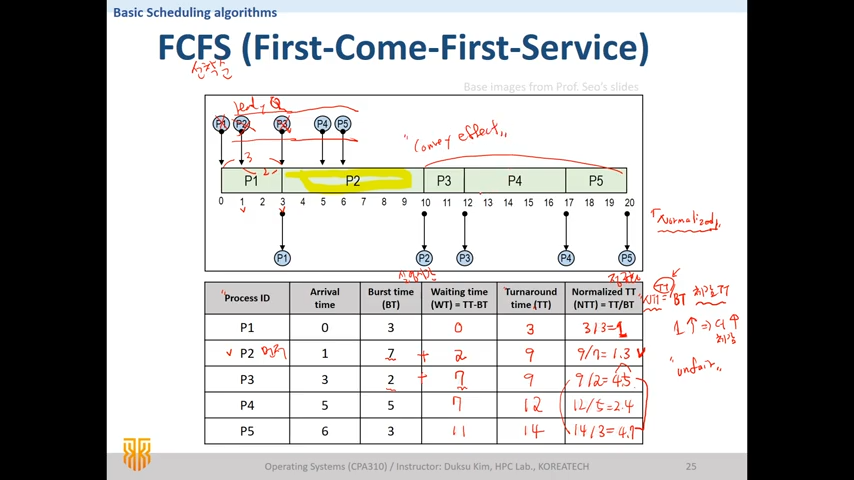 Basic Scheduling algorithms
FCFS (First-Come-First-Service)
선착순
Base images from Prof. Seo's slides
Ready Q
P1 P2 P3 P4 P5
"Convoy effect"
3
2
P1 P2 P3 P4 P5
0 1 2 3 4 5 6 7 8 9 10 11 12 13 14 15 16 17 18 19 20
"Normalized"
P1 P2 P3 P4 P5
실행시간
Process ID Arrival time Burst time (BT) Waiting time (WT) = TT-BT Turnaround time (TT) Normalized TT (NTT) = TT/BT
NTT = TT BT 체감 TT
P1 0 3 0 3 3/3=1
1↑ ⇒ 더↑
체감
P2 1 7 + 2 9 9/7=1.3
"unfair"
P3 3 2 + 7 9 9/2=4.5
P4 5 5 7 12 12/5=2.4
P5 6 3 11 14 14/3=4.7
Operating Systems (CPA310) / Instructor: Duksu Kim, HPC Lab., KOREATECH
25